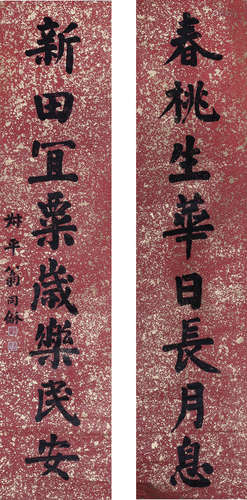 春桃生華日長月息
新田宜粟歲樂民安
叔平翁同龢